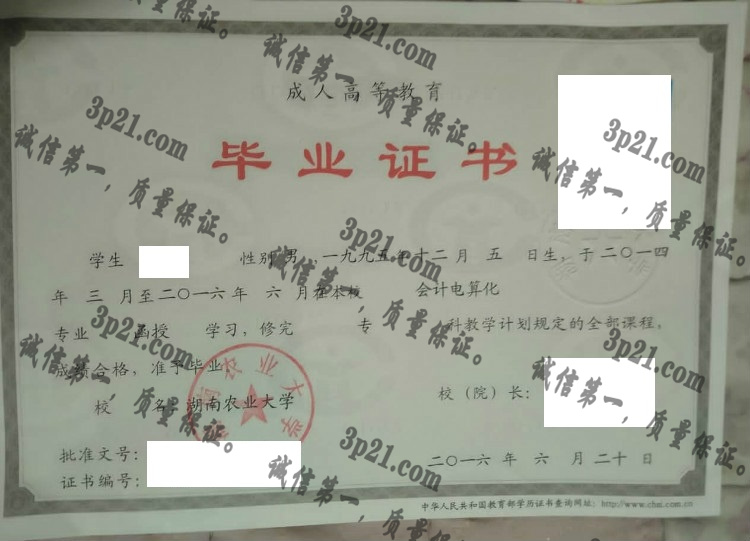 成人高等教育
毕业证书
学生 性别 男 ,一九九五年十二月 五 日生,于二〇一四
年 三 月至二〇一六年 六 月在本校 会计电算化
专业 函授 学习,修完 专 科教学计划规定的全部课程,
成绩合格,准予毕业。
校 名:湖南农业大学
校(院)长:
批准文号:
证书编号:
二〇一六 年 六 月二十日
中华人民共和国教育部学历证书查询网址:http://www.chsi.com.cn
3p21.com
诚信第一,质量保证。
3p21.com
诚信第一,质量保证。
3p21.com
诚信第一,质量保证。
3p21.com
诚信第一,质量保证。
3p21.com
诚信第一,质量保证。
3p21.com
诚信第一,质量保证。
3p21.com
诚信第一,质量保证。
质量保证。